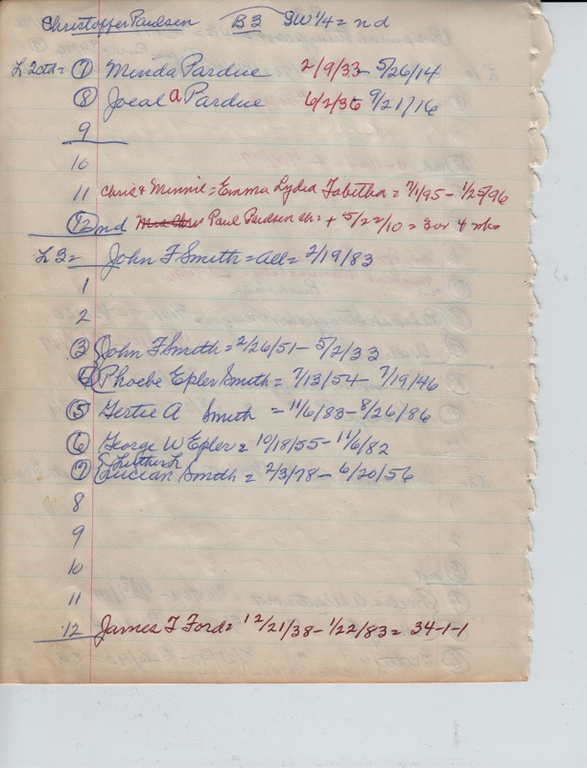 Christoffer Paulsen B3 SW 1/4 = nd
L 2ctd = 7 Minda Pardue 2/9/33 - 5/26/14
8 Joeal a Pardue 6/2/36 9/21/16
9
10
11 Chris & Minnie = Emma Lydia Tabitha = 7/1/95 - 1/25/96
12 nd Paul Paulsen ch = + 5/22/10 = 3 or 4 wks
L 3 = John F Smith = all = 2/19/83
1
2
3 John F Smith = 2/26/51 - 5/2/33
4 Phoebe Epler Smith = 7/13/54 - 7/19/46
5 Gertie A Smith = 11/6/83 - 8/26/86
6 George W Epler = 10/18/55 - 11/6/82
7 Lucian Smith = 2/3/78 - 6/20/56
8
9
10
11
12 James T Ford = 12/21/38 - 1/22/83 = 34-1-1